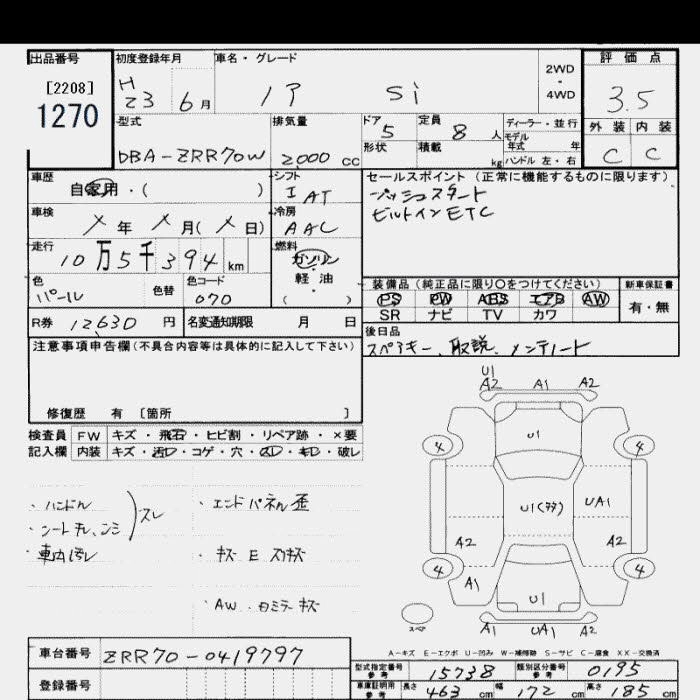 出品番号
[2208]
1270
初度登録年月
H
23 6月
車名・グレード
ノア Si
2WD
・
4WD
評価点
3.5
外装 内装
C C
型式
DBA-ZRR70W
排気量
2,000 cc
ドア 5
形状
定員 8 人
積載 kg
ディーラー・並行
モデル
年式 年
ハンドル 左・右
車歴
自家用・( )
車検
年 月( 日)
走行
10万5千394 km
色
パール
色替
色コード
070
シフト
I AT
冷房
AAC
燃料
ガソリン
・
軽油
( )
セールスポイント (正常に機能するものに限ります)
プッシュスタート
ビルトインETC
装備品 (純正品に限り○をつけてください)
PS PW ABS エアB AW
SR ナビ TV カワ
新車保証書
有・無
R券 12,630 円
名変通知期限 月 日
後日品
スペアキー、取説、メンテノート
注意事項申告欄(不具合内容等は具体的に記入して下さい)
修復歴 有 [箇所 ]
検査員 FW キズ・飛石・ヒビ割・リペア跡・×要
記入欄 内装 キズ・汚レ・コゲ・穴・凹・破レ
・ハンドル
・シート
スレ
・車内汚レ
・エンドパネル歪
・キズ E スリキズ
・AW、ロミラーキズ
U1
A2 A1 A2
4 U1 4
U1(ﾜﾀ) UA1
A2 A2
4 4
A1
U1
スペア
A1 UA1 A2
A-キズ E-エクボ U-凹み W-補修跡 S-サビ C-腐食 XX-交換済
車台番号 ZRR70-0419797
登録番号
型式指定番号
参考
15738
類別区分番号
参考
0195
車庫証明用
参考
長さ 463 cm 幅 172 cm 高さ 185 cm